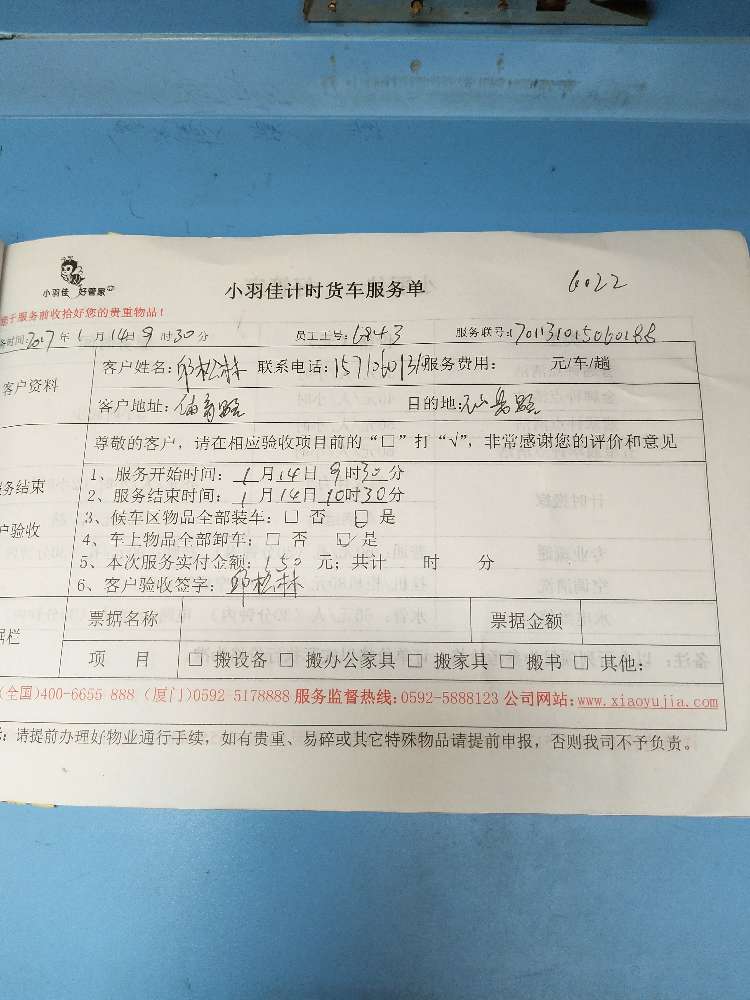 小羽佳 好管家
小羽佳计时货车服务单
6022
于服务前收拾好您的贵重物品!
务时间:2017年1月14日9时30分 员工工号:6843 服务联号:(701131015060188
客户资料 客户姓名:邱松林 联系电话: 服务费用: 元/车/趟
客户地址:体育路 目的地:仙岳路
尊敬的客户,请在相应验收项目前的“□”打“√”,非常感谢您的评价和意见
务结束 1、服务开始时间:1月14日9时30分
2、服务结束时间:1月14日10时30分
户验收 3、候车区物品全部装车:□ 否 ☑ 是
4、车上物品全部卸车:□ 否 ☑ 是
5、本次服务实付金额:150元;共计 时 分
6、客户验收签字:邱松林
据栏 票据名称 票据金额
项 目 □ 搬设备 □ 搬办公家具 □ 搬家具 □ 搬书 □ 其他:
(全国)400-6655 888 (厦门)0592 5178888 服务监督热线:0592-5888123 公司网站:www.xiaoyujia.com
:请提前办理好物业通行手续,如有贵重、易碎或其它特殊物品请提前申报,否则我司不予负责。